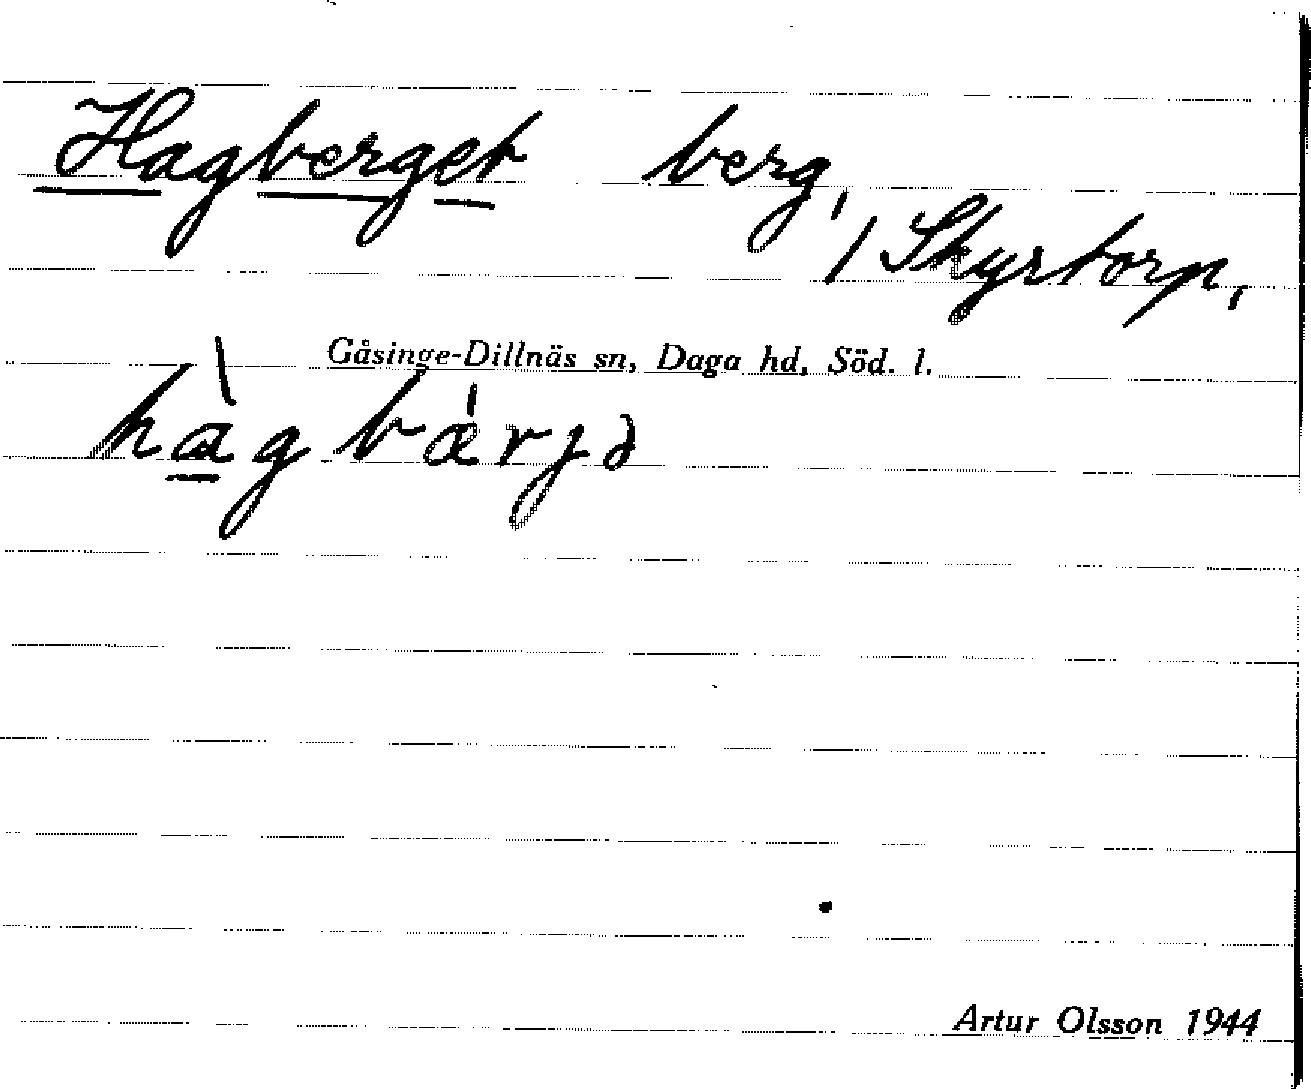 Hagberget berg,
/ Skyrtorp,
Gåsinge-Dillnäs sn, Daga hd, Söd. l.
hàgbǽrjə
Artur Olsson 1944